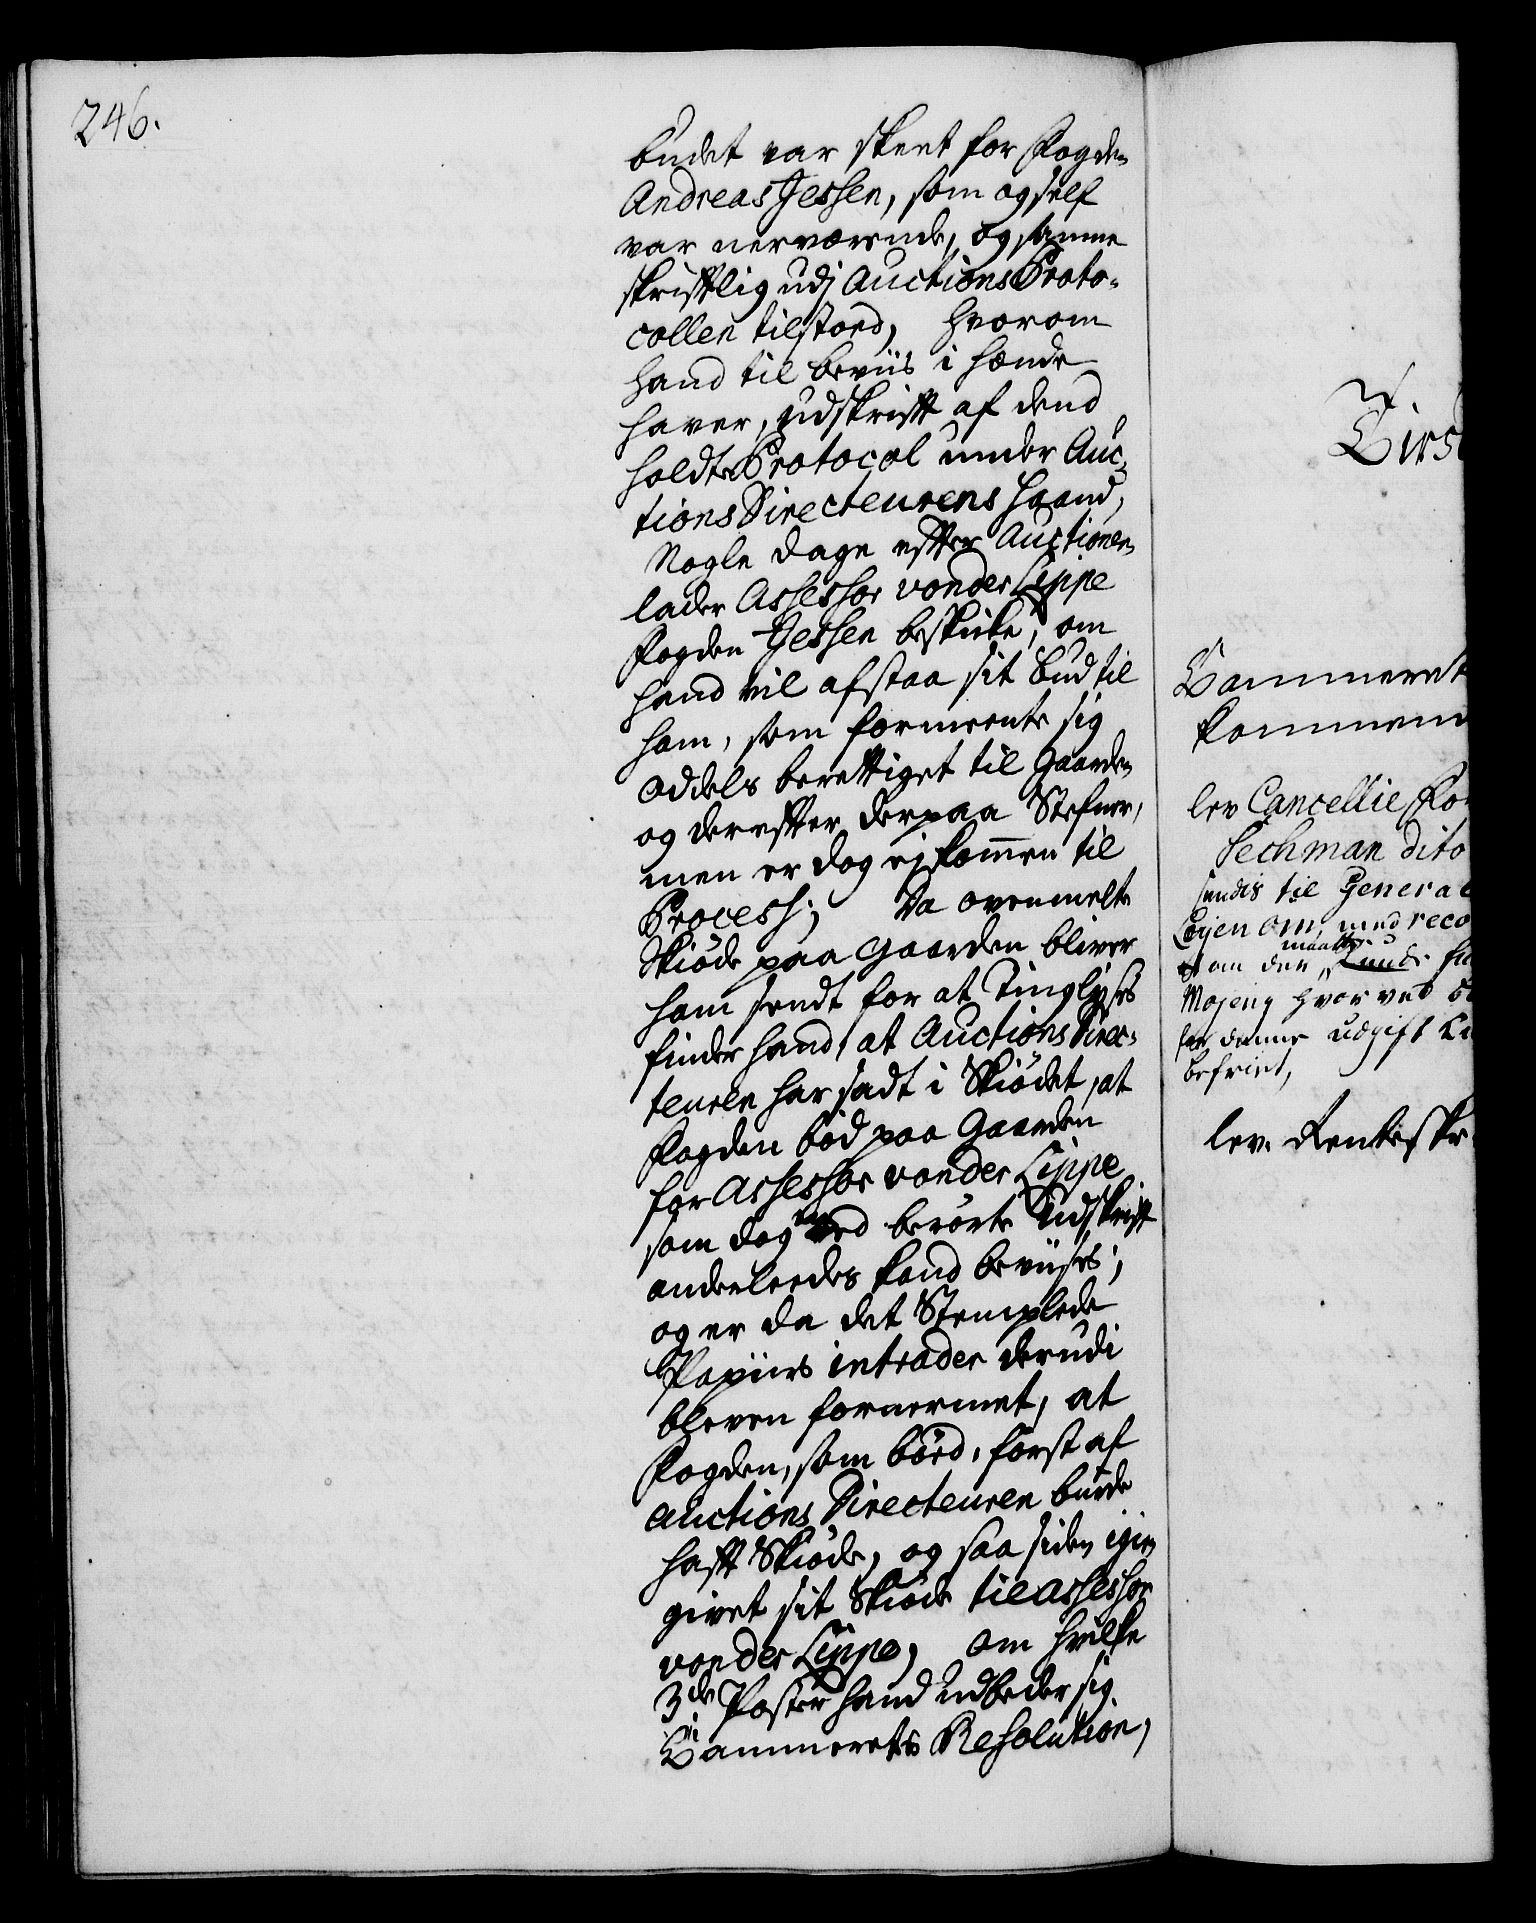 246.
budet var skeet for Fogden
Andreas Jessen, som og self
var nerværende, og samme
skrifftlig udj Auctions Proto-
collen tilstoed, hvorom
hand til beviis i hænde
haver, udskrifft af dend
holdte Protocol under Auc-
tions Directeurens haand,
Nogle dage effter Auctionen
lader Assessor von der Lippe
Fogden Jessen beskicke, om
hand vil afstaa sit bud til
ham, som formeente sig
oddels berettiget til gaarden
og dereffter derpaa Stefner,
men er dog ej kommen til
Process; Da ovenmelte
Skiøde paa gaarden bliver
ham sendt for at Tinglyses
finder hand, at Auctions Direc-
teuren har sadt i Skiødet, at
Fogden bød paa gaarden
for Assessor von der Lippe
som dog ved berørte Udskrifft
anderleedes kand beviises;
og er da det Stemplede
Papiirs intrader derudi
bleven fornermet, at
Fogden, som bød, først af
Auctions Directeuren burde
hafft Skiøde, og saa siden igien
givet sit Skiøde til Assessor
von der Lippe, om hvilke
3de Poster hand udbeder sig
Cammerets Resolution,
Cammeret
kommen
lev Cancellie
Sechman dito
sendis til General
Løjen om, med reco
om den maatte
Mojeng hvor ved
for denne udgift
befriet,
lev. Renteskr